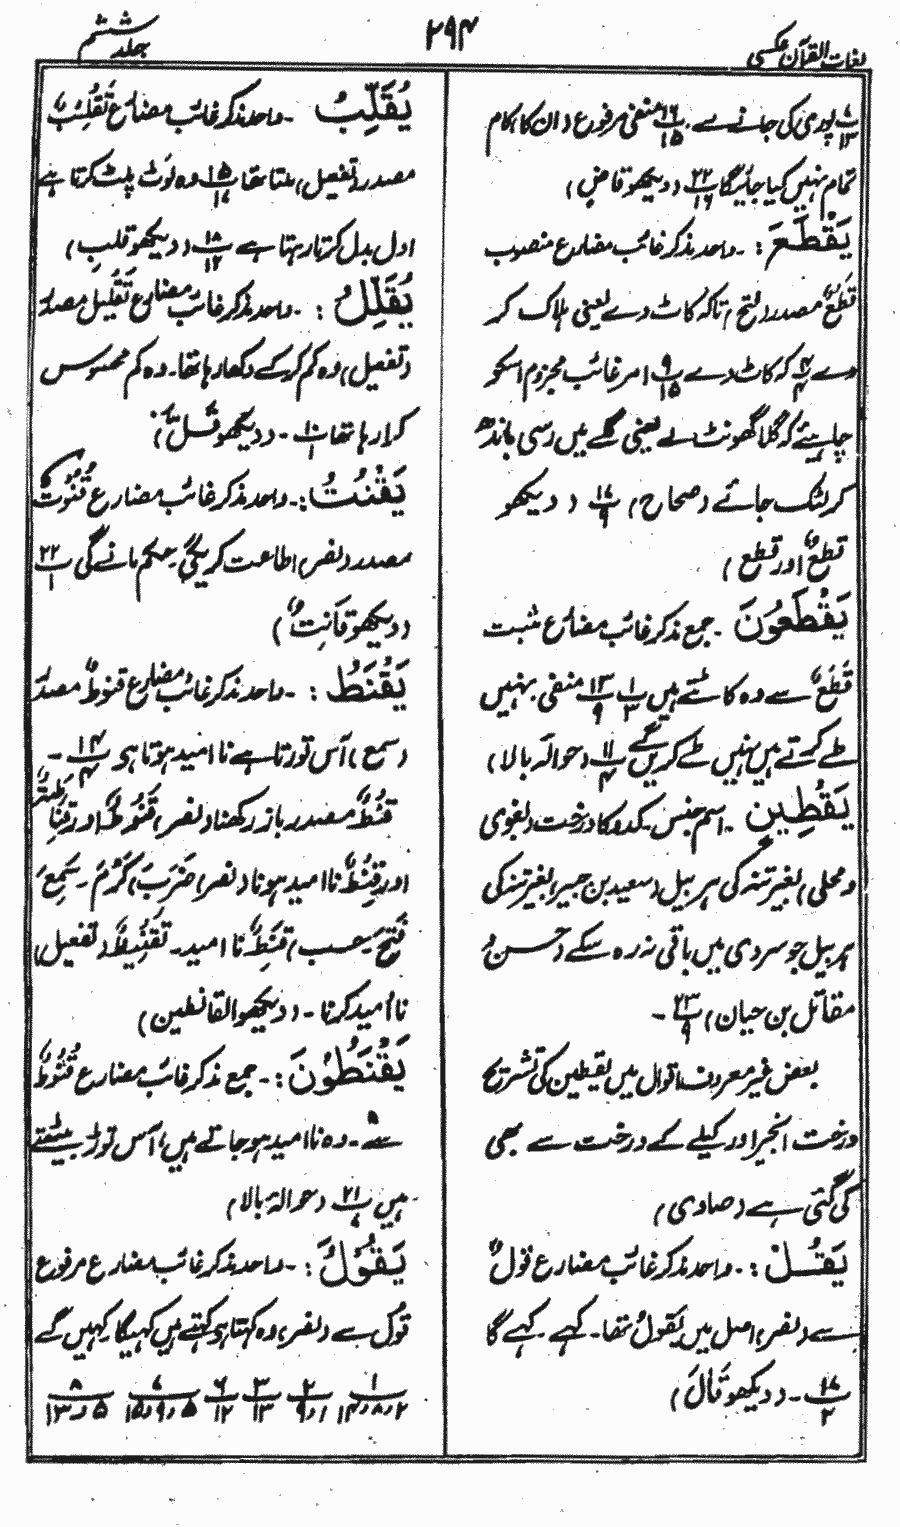 لغات القرآن عکسی
۲۹۴
جلد ششم
۷/۱۳ پوری کی جانے سے ۱۶/۱۵ منفی مرفوع (ان کا کام
تمام نہیں کیا جائیگا ۲۲/۱۶ (دیکھو قاضٍ)
یَقْطَعَ : ۔ واحد مذکر غائب مضارع منصوب
قَطْعٌ مصدر (فتح) تاکہ کاٹ دے یعنی ہلاک کر
دے ۴/۴ کہ کاٹ دے ۹/۱۵ امر غائب مجزوم اسکو
چاہیئے کہ گلا گھونٹ لے یعنی گلے میں رسی باندھ
کر لٹک جائے (صحاح) ۱۷/۹ (دیکھو
قطعٌ اور قطع)
یَقْطَعُوْنَ ۔ جمع مذکر غائب مضارع مثبت
قَطْعٌ سے وہ کاٹتے ہیں ۱/۳ ۱۳/۹ منفی نہیں
طے کرتے ہیں نہیں طے کریں گے ۱۱/۴ (حوالہ بالا)
یَقْطِیْنٍ ۔ اسم جنس ۔ کدو کا درخت (لغوی
و محلی) بغیر تنہ کی ہر بیل (سعید بن جبیر) بغیر تنہ کی
ہر بیل جو سردی میں باقی نہ رہ سکے (حسن و
مقاتل بن حیان) ۲۳/۹ ۔
بعض غیر معروف اقوال میں یقطین کی تشریح
درخت انجیر اور کیلے کے درخت سے بھی
کی گئی ہے (صاوی)
یَقُــلْ : ۔ واحد مذکر غائب مضارع قَوْلٌ
سے (نصر) اصل میں یَقُوْلُ تھا ۔ کہے ۔ کہے گا
۱۷/۲ ۔ (دیکھو قَالَ)
یُقَلِّبُ ۔ واحد مذکر غائب مضارع تَقْلِیْبٌ
مصدر (تفعیل) ملتا تھا ۱۵/۱۷ وہ لوٹ پلٹ کرتا ہے
ادل بدل کرتا رہتا ہے ۱۸/۱۲ (دیکھو قلب)
یُقَلِّلُ : ۔ واحد مذکر غائب مضارع تَقْلِیْل مصدر
(تفعیل) وہ کم کر کے دکھا رہا تھا ۔ وہ کم محسوس
کرا رہا تھا ۱۰/۱ ۔ (دیکھو قَــلَّ)
یَقْنُتُ : ۔ واحد مذکر غائب مضارع قُنُوْتٌ
مصدر (نصر) اطاعت کریگی ۔ حکم مانے گی ۲۲/۱
(دیکھو قَانِتٌ)
یَقْنَطُ : ۔ واحد مذکر غائب مضارع قنوطٌ مصدر
(سمع) آس توڑتا ہے نا امید ہوتا ہو ۱۴/۴ ۔
قَنْطٌ مصدر باز رکھنا (نصر) قُنُوْطٌ اور قَنَاطَۃٌ
اور قَنَطٌ نا امید ہونا (نصر، ضَرَبَ) کَرُمَ ۔ سَمِعَ
فَتَحَ ۔ حسب) قَنِطٌ نا امید ۔ تَقْنِیْطٌ (تفعیل)
نا امید کرنا ۔ (دیکھو القانطین)
یَقْنَطُوْنَ : ۔ جمع مذکر غائب مضارع قُنُوْطٌ
سے ۔ وہ نا امید ہو جاتے ہیں، آس توڑ بیٹھتے
ہیں ۲۱/۷ (حوالہ بالا)
یَقُوْلُ : ۔ واحد مذکر غائب مضارع مرفوع
قول سے (نصر) وہ کہتا ہو کہتے ہیں کہیگا ۔ کہیں گے
۱/۲،۸،۱۴ ۲/۱،۹ ۳/۱۳ ۶/۱۲ ۷/۵،۹،۱۵ ۸/۵،۱۳